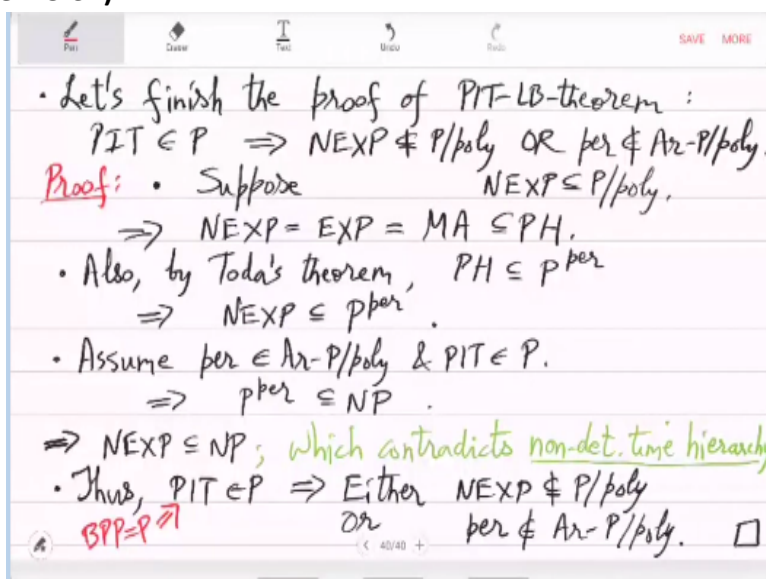 Pen Eraser Text Undo Redo SAVE MORE
• Let's finish the proof of PIT-LB-theorem :
PIT ∈ P ⇒ NEXP ⊄ P/poly OR per ∉ Ar-P/poly.
Proof: • Suppose NEXP ⊆ P/poly.
⇒ NEXP = EXP = MA ⊆ PH.
• Also, by Toda's theorem, PH ⊆ P^per
⇒ NEXP ⊆ P^per.
• Assume per ∈ Ar-P/poly & PIT ∈ P.
⇒ P^per ⊆ NP.
⇒ NEXP ⊆ NP ; which contradicts non-det. time hierarchy
• Thus, PIT ∈ P ⇒ Either NEXP ⊄ P/poly
BPP=P ⇒ or per ∉ Ar-P/poly. □
< 40/40 +